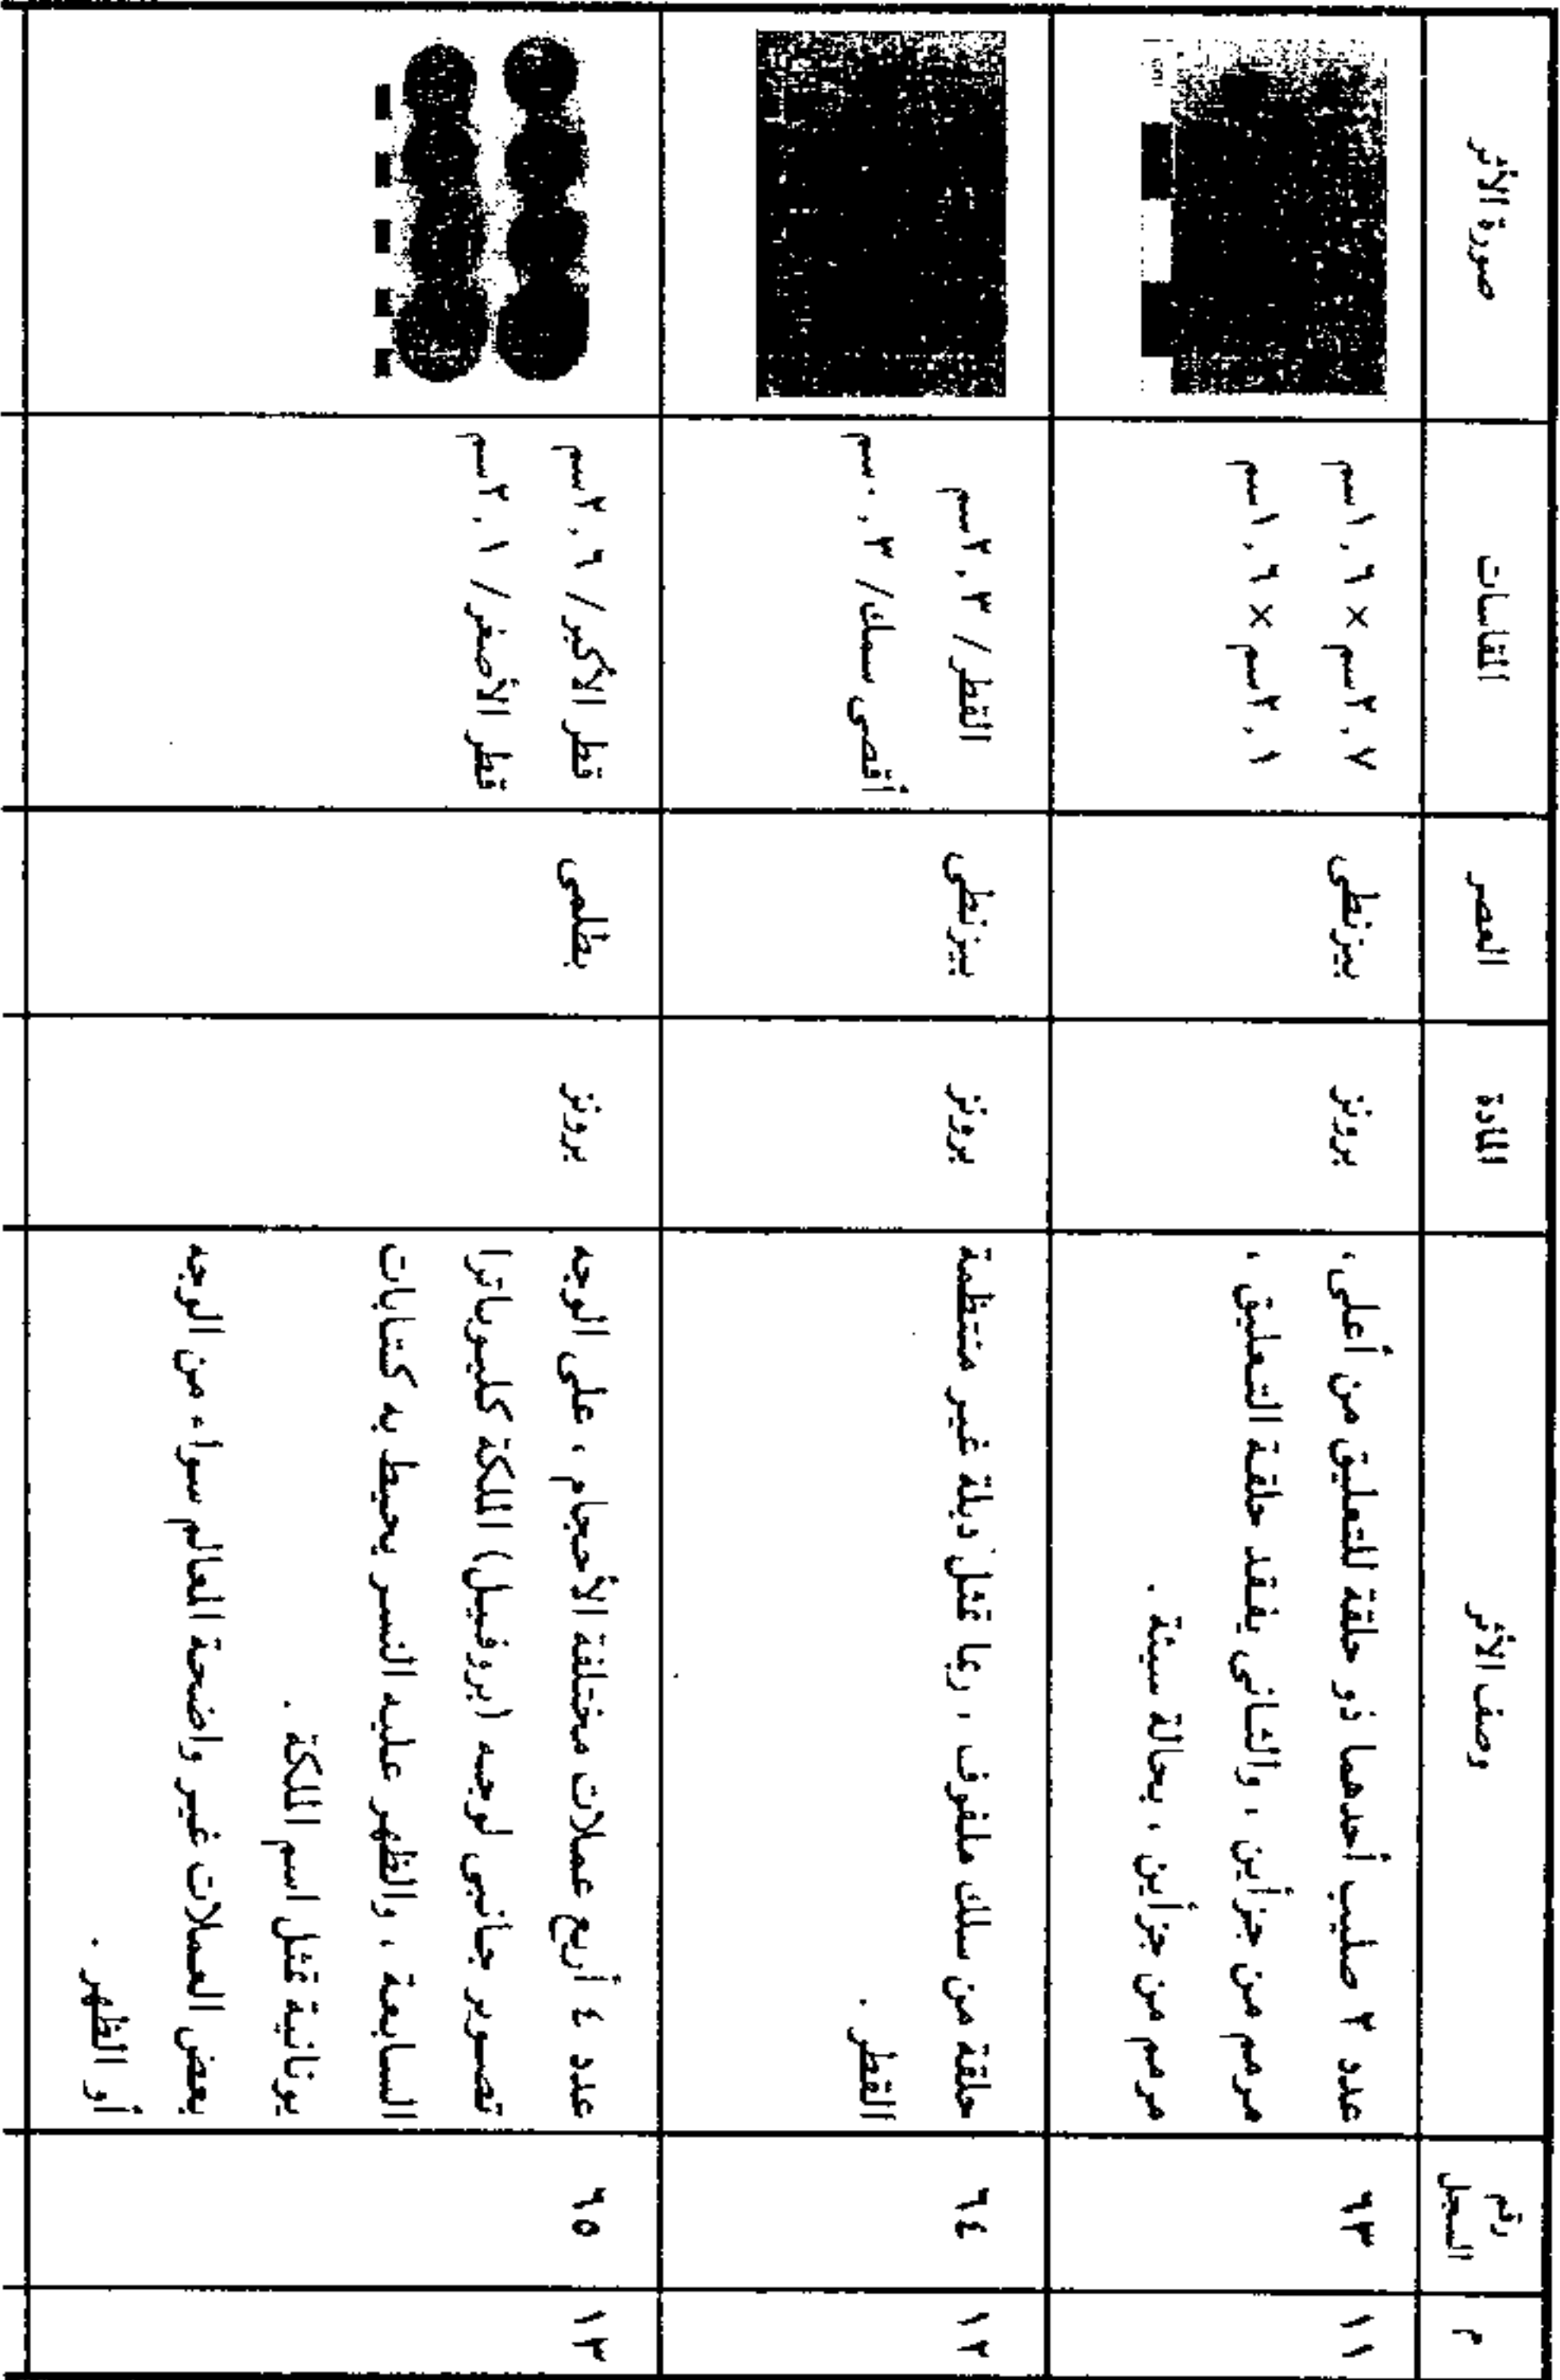 م
رقم السجل
وصف الأثر
المادة
العصر
المقاسات
صورة الأثر
١١
٦٣
عدد ٢ صليب أحدهما ذو حلقة للتعليق من أعلى،
مرمم من جزأين ، والثانى يفقد حلقة التعليق ،
مرمم من جزأين ، بحالة سيئة .
برونز
بيزنطى
٢,٧سم × ١,٦سم
٢,١سم × ١,٦سم
١٢
٦٤
حلقة من سلك ملفوف ، ربما تمثل دبلة غير منتظمة
القطر .
برونز
بيزنطى
القطر / ٢,٣سم
أقصى سمك / ٠,٣سم
١٣
٦٥
عدد ٤ أربع عملات مختلفة الأحجام ، على الوجه
تصوير جانبي لوجه (بروفيل) الملكة كليوباترا
السابعة ، والظهر عليه النسر يحيط به كتابات
يونانية تمثل اسم الملكة .
بعض العملات غير واضحة المعالم سواء من الوجه
أو الظهر .
برونز
بطلمى
قطر الأكبر / ٢,٦سم
قطر الأصغر / ٢,١سم